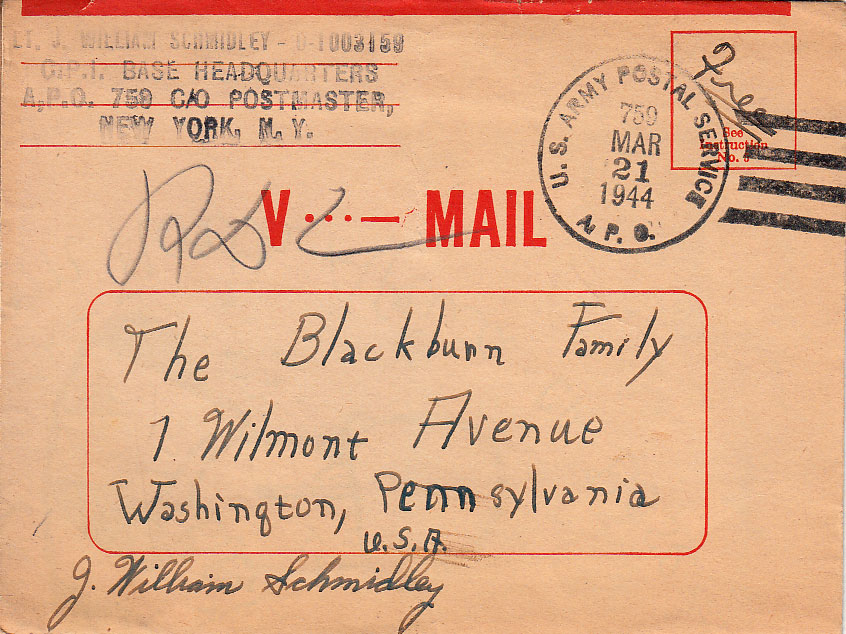 LT. J. WILLIAM SCHMIDLEY - O-1003159
C.P.I. BASE HEADQUARTERS
A.P.O. 759 C/O POSTMASTER,
NEW YORK, N.Y.
U.S. ARMY POSTAL SERVICE
759
MAR
21
1944
A.P.O.
Free
See
Instruction
No.
V···— MAIL
The Blackburn Family
7 Wilmont Avenue
Washington, Pennsylvania
U.S.A.
J. William Schmidley